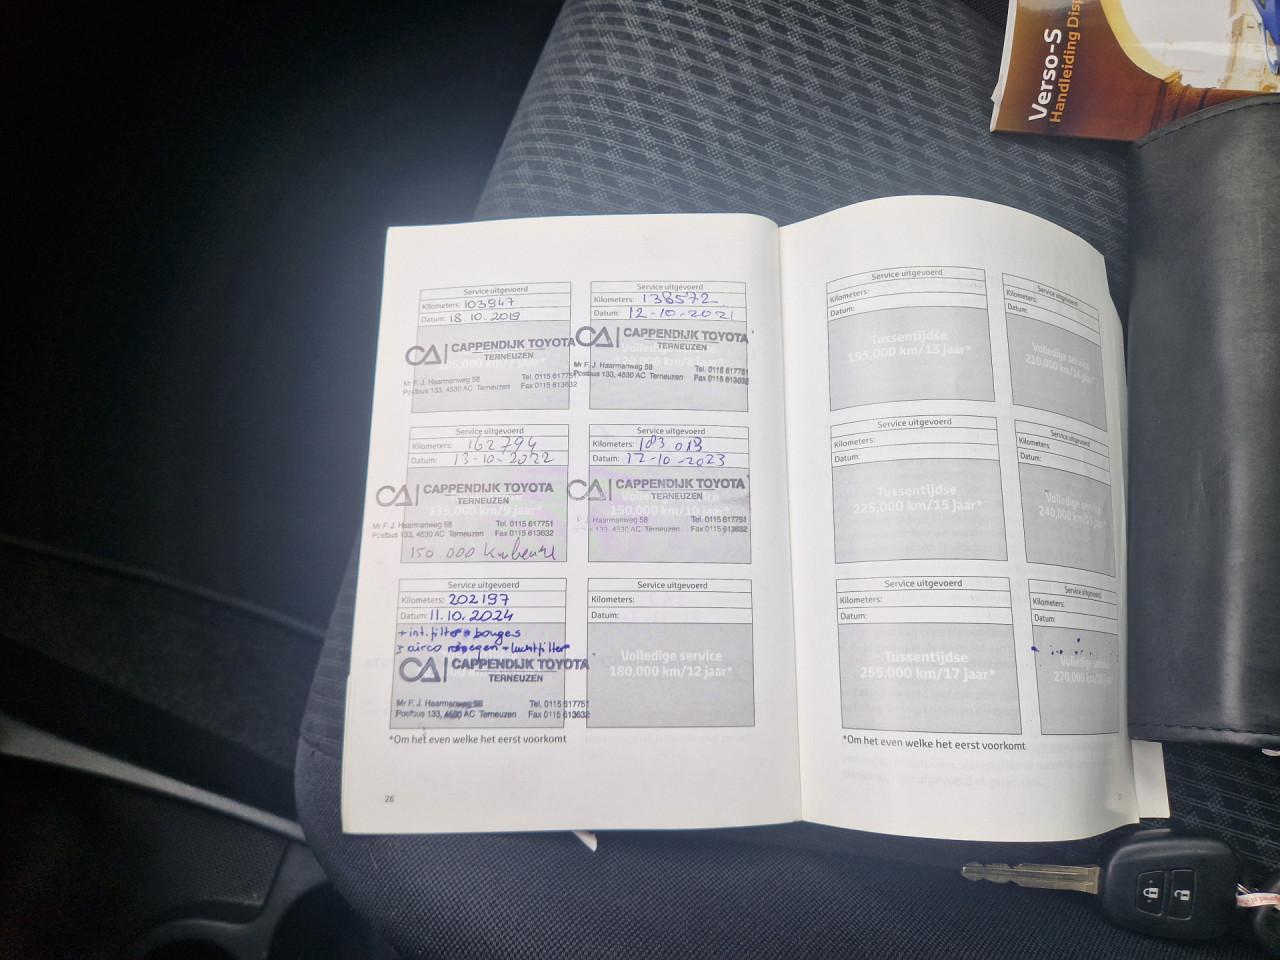 Verso-S
Handleiding
Service uitgevoerd
Kilometers: 103947
Datum: 18 10. 2019
CAPPENDIJK TOYOTA
TERNEUZEN
Mr F. J. Haarmanweg 58 Tel. 0115 617751
Postbus 133, 4530 AC Terneuzen Fax 0115 613632
Service uitgevoerd
Kilometers: 138572
Datum: 12-10-2021
CAPPENDIJK TOYOTA
TERNEUZEN
Mr F. J. Haarmanweg 58 Tel. 0115 617751
Postbus 133, 4530 AC Terneuzen Fax 0115 613632
Service uitgevoerd
Kilometers: 162794
Datum: 13-10-2022
CAPPENDIJK TOYOTA
TERNEUZEN
135,000 km/9 jaar*
Mr F. J. Haarmanweg 58 Tel. 0115 617751
Postbus 133, 4530 AC Terneuzen Fax 0115 613632
150.000 km beurt
Service uitgevoerd
Kilometers: 183 013
Datum: 12-10-2023
CAPPENDIJK TOYOTA
TERNEUZEN
150,000 km/10 jaar*
F. J. Haarmanweg 58 Tel. 0115 617751
133, 4530 AC Terneuzen Fax 0115 613632
Service uitgevoerd
Kilometers: 202197
Datum: 11.10.2024
+ int. filter + bougies
+ airco reinigen + luchtfilter
CAPPENDIJK TOYOTA
TERNEUZEN
Mr F. J. Haarmanweg 58 Tel. 0115 617751
Postbus 133, 4530 AC Terneuzen Fax 0115 613632
Service uitgevoerd
Kilometers:
Datum:
Volledige service
180,000 km/12 jaar*
*Om het even welke het eerst voorkomt
26
Service uitgevoerd
Kilometers:
Datum:
Tussentijdse
195,000 km/13 jaar*
Service uitgevoerd
Kilometers:
Datum:
Volledige service
210,000 km/14 jaar*
Service uitgevoerd
Kilometers:
Datum:
Tussentijdse
225,000 km/15 jaar*
Service uitgevoerd
Kilometers:
Datum:
Volledige service
240,000 km/16 jaar*
Service uitgevoerd
Kilometers:
Datum:
Tussentijdse
255,000 km/17 jaar*
Service uitgevoerd
Kilometers:
Datum:
Volledige
270,000 km/18
*Om het even welke het eerst voorkomt